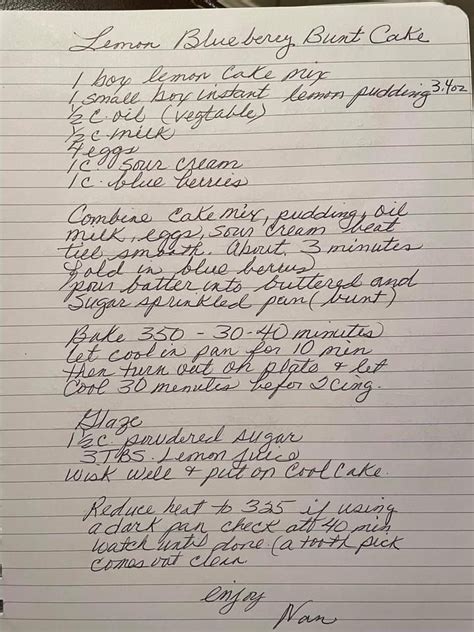 Lemon Blueberey Bunt Cake
1 box lemon cake mix
1 small box instant lemon pudding 3.4oz
½ c. oil (vegtable)
½ c milk
4 eggs
1c. sour cream
1c. blue berries
Combine cake mix, pudding, oil
milk, eggs, sour cream beat
till smooth. About 3 minutes
fold in blue berries
pour batter into buttered and
sugar sprinkled pan (bunt)
Bake 350 - 30-40 minutes
let cool in pan for 10 min
then turn out on plate & let
cool 30 menutes befor Icing.
Glaze
1½c powdered sugar
3 TBS. Lemon juice
Wisk well & put on cool cake.
Reduce heat to 325 if using
a dark pan, check at 40 min
watch until done. (a tooth pick
comes out clean
enjoy
Nan